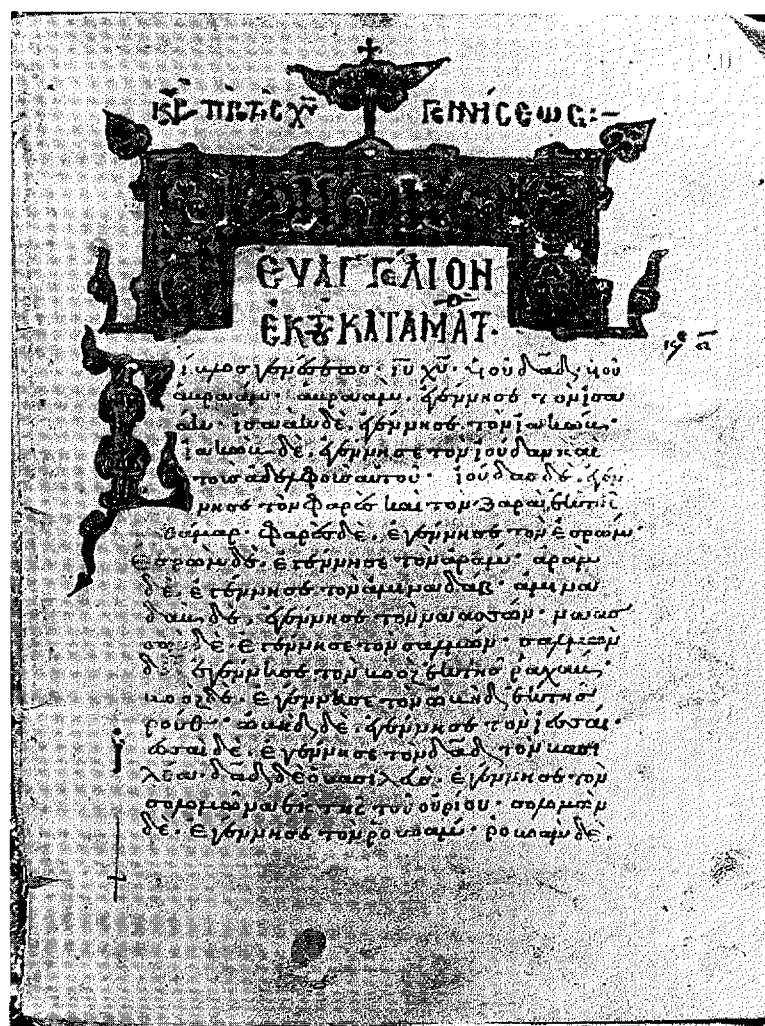 ΓΕΝΝΉCΕΩC:–
ΕΥΑΓΓΈΛΙΟΝ
ἘΚ ΤΟΥ ΚΑΤΑ ΜΑΤ.
Βίβλος γενέσεως ιυ χυ· υἱοῦ δαδ, υἱοῦ
ἀβραάμ· ἀβραὰμ, ἐγέννησε τὸν ἰσα
άκ· ἰσαὰκ δὲ, ἐγέννησε τὸν ἰακώβ·
ἰακὼβ δὲ, ἐγέννησε τὸν ἰούδαν καὶ
τοὺς ἀδελφοὺς αὐτοῦ· ἰούδας δὲ, ἐγέν
νησε τὸν φαρὲς καὶ τὸν ζαρὰ, ἐκ τῆς
θάμαρ· φαρὲς δὲ, ἐγέννησε τὸν ἐσρώμ·
ἐσρὼμ δὲ, ἐγέννησε τὸν ἀράμ· ἀρὰμ
δὲ, ἐγέννησε τὸν ἀμιναδάβ· ἀμινα
δὰβ δὲ, ἐγέννησε τὸν ναασσών· ναασ
σὼν δὲ, ἐγέννησε τὸν σαλμών· σαλμὼν
δὲ, ἐγέννησε τὸν βοὸζ ἐκ τῆς ῥαχάβ·
βοὸζ δὲ, ἐγέννησε τὸν ὠβὴδ ἐκ τῆς
ῥούθ· ὠβὴδ δὲ, ἐγέννησε τὸν ἰεσσαί·
ἰεσσαὶ δὲ, ἐγέννησε τὸν δαδ, τὸν βασι
λέα· δαδ δὲ ὁ βασιλεὺς, ἐγέννησε τὸν
σολομῶνα ἐκ τῆς τοῦ οὐρίου· σολομὼν
δὲ, ἐγέννησε τὸν ῥοβοάμ· ῥοβοὰμ δὲ,